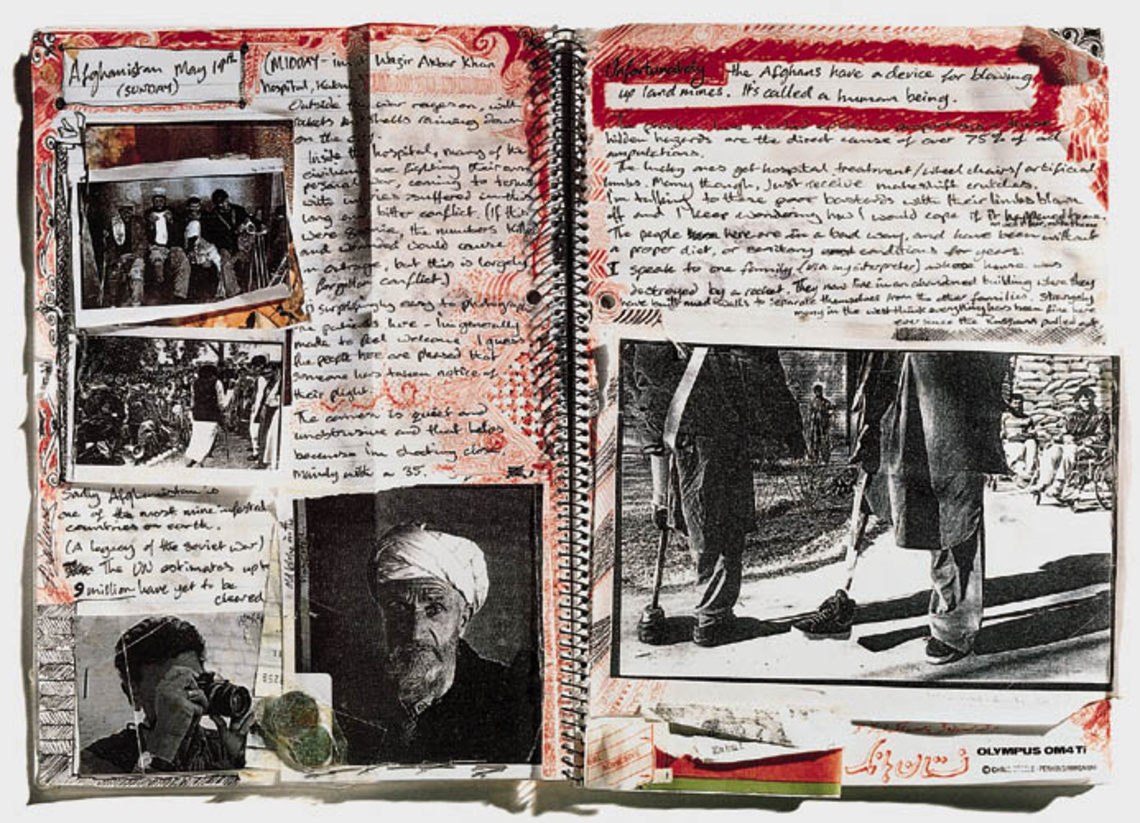 Afghanistan May 19th
(SUNDAY)
(MIDDAY - in Wazir Akbar Khan
hospital,
Outside war rages on, with
rockets shells raining down
on the city.
Inside hospital, many of the
civilians are fighting their own
personal war, coming to terms
with suffered in this
long and bitter conflict. (If this
were the numbers killed
and wounded would cause
an outrage, but this is largely
forgotten conflict)
surprisingly easy to photograph
the patients here - I'm generally
made to feel welcome. I guess
the people here are pleased that
someone has taken notice of
their plight.
The camera is quiet and
unobtrusive and that helps
because i'm shooting close
mainly with a 35.
Sadly Afghanistan is
one of the most mine infested
countries on earth.
(A legacy of the Soviet war)
The UN estimates up to
9 million have yet to be
cleared
Unfortunately the Afghans have a device for blowing
up land mines. It's called a human being.
hidden hazards are the direct cause of over 75% of
amputations.
The lucky ones get hospital treatment/wheel chairs/artificial
limbs. Many though, just receive makeshift crutches.
I'm talking to these poor bastards with their limbs blown
off and I keep wondering how I would cope if it happened to me.
The people here are in a bad way, and have been without
a proper diet, or sanitary conditions for years.
I speak to one family (via my interpreter) whose house was
destroyed by a rocket. They now live in an abandoned building where they
have built mud walls to separate themselves from the other families. Strangely
many in the west think everything has been fine here
ever since the Russians pulled out
Kabul
OLYMPUS OM4Ti